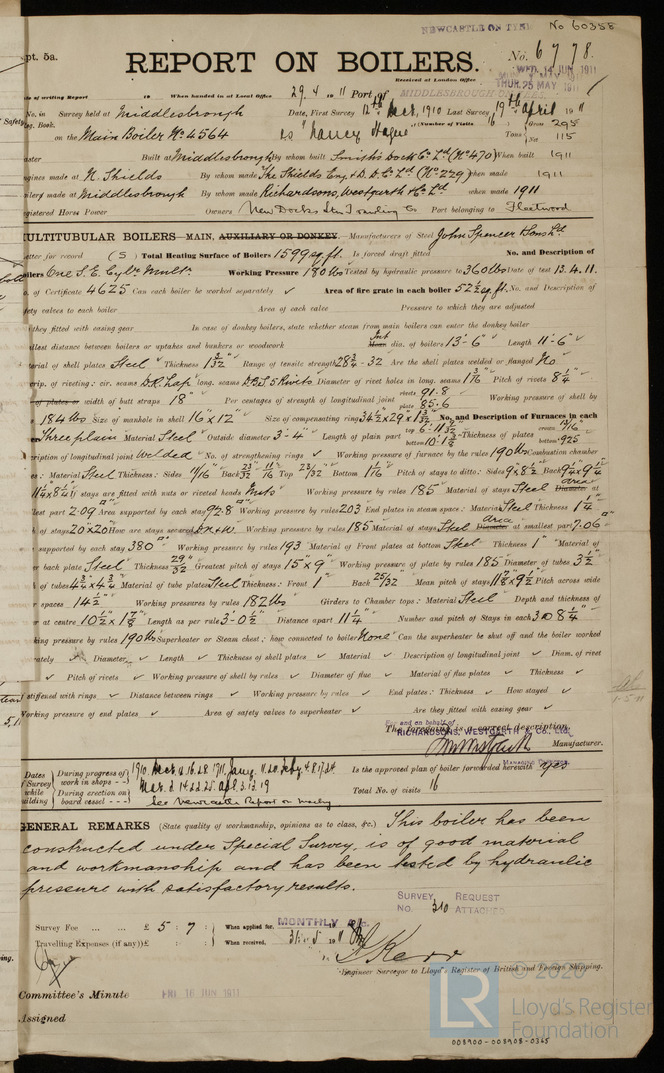 NEWCASTLE ON TYNE No 60358
pt. 5a.
REPORT ON BOILERS. No. 6778.
WED. 14 JUN 1911
Received at London Office THUR. 25 MAY 1911
te of writing Report 19 When handed in at Local Office 29.4.1911 Port of MIDDLESBROUGH
No. in Survey held at Middlesbrough Date, First Survey 12th Dec. 1910 Last Survey 19th April 1911
eg. Book. (Number of Visits 16) Gross 295
on the Main Boiler No 4564 ss "Nancy Hague" Tons Net 115
aster Built at Middlesbrough By whom built Smith's Dock Co. Ld (No 470) When built 1911
ngines made at N. Shields By whom made The Shields Eng. & D.D. Co. Ld (No 229) when made 1911
oilers made at Middlesbrough By whom made Richardsons, Westgarth & Co. Ld. when made 1911
egistered Horse Power Owners New Docks Stm Trawling Co Port belonging to Fleetwood
ULTITUBULAR BOILERS MAIN, AUXILIARY OR DONKEY. Manufacturers of Steel John Spencer & Sons Ld
etter for record (S) Total Heating Surface of Boilers 1599 sq. ft. Is forced draft fitted No. and Description of
oilers One S.E. Cylr Multr. Working Pressure 180 lbs Tested by hydraulic pressure to 360 lbs Date of test 13.4.11.
o. of Certificate 4625 Can each boiler be worked separately ✓ Area of fire grate in each boiler 52½ sq. ft. No. and Description of
fety valves to each boiler Area of each valve Pressure to which they are adjusted
they fitted with easing gear In case of donkey boilers, state whether steam from main boilers can enter the donkey boiler
allest distance between boilers or uptakes and bunkers or woodwork Int Mean dia. of boilers 13'-6" Length 11'-6"
aterial of shell plates Steel Thickness 1 3/32" Range of tensile strength 28¾-32 Are the shell plates welded or flanged No
scrip. of riveting: cir. seams D.R. Lap long. seams D.B.S. 5 Rivits Diameter of rivet holes in long. seams 1 3/16" Pitch of rivets 8¼"
of plates or width of butt straps 18" Per centages of strength of longitudinal joint rivets 91.8 plate 85.6 Working pressure of shell by
s 184 lbs Size of manhole in shell 16" x 12" Size of compensating ring 34½ x 29 x 1 3/32 No. and Description of Furnaces in each
Three plain Material Steel Outside diameter 3'-4" Length of plain part top 6'-11 bottom 10'-1 Thickness of plates crown 13/16" bottom .925
scription of longitudinal joint Welded No. of strengthening rings ✓ Working pressure of furnace by the rules 190 lbs Combustion chamber
es: Material Steel Thickness: Sides 11/16" Back 23/32 Top 23/32 Bottom 1 1/16 Pitch of stays to ditto: Sides 9¾ x 8½ Back 9¼ x 9¼
stays are fitted with nuts or riveted heads Nuts Working pressure by rules 185 Material of stays Steel Area Diameter at
llest part 2.09 Area supported by each stay 92.8 Working pressure by rules 203 End plates in steam space: Material Steel Thickness 1¼"
h of stays 20" x 20 How are stays secured Working pressure by rules 185 Material of stays Steel Area Diameter at smallest part 7.06
supported by each stay 380 Working pressure by rules 193 Material of Front plates at bottom Steel Thickness 1" Material of
er back plate Steel Thickness 29/32 Greatest pitch of stays 15" x 9" Working pressure of plate by rules 185 Diameter of tubes 3½"
of tubes 4¾ x 4¾ Material of tube plates Steel Thickness: Front 1" Back 25/32 Mean pitch of stays 11⅞ x 9½ Pitch across wide
r spaces 14½" Working pressures by rules 182 lbs Girders to Chamber tops: Material Steel Depth and thickness of
er at centre 10½ x 1⅞ Length as per rule 3'-0½" Distance apart 11¼" Number and pitch of Stays in each 3 @ 8¼"
king pressure by rules 190 lbs Superheater or Steam chest; how connected to boiler None Can the superheater be shut off and the boiler worked
rately ✓ Diameter ✓ Length ✓ Thickness of shell plates ✓ Material ✓ Description of longitudinal joint ✓ Diam. of rivet
✓ Pitch of rivets ✓ Working pressure of shell by rules ✓ Diameter of flue ✓ Material of flue plates ✓ Thickness ✓
stiffened with rings ✓ Distance between rings ✓ Working pressure by rules ✓ End plates: Thickness ✓ How stayed ✓
Working pressure of end plates ✓ Area of safety valves to superheater ✓ Are they fitted with easing gear ✓
The foregoing is a correct description,
For and on behalf of
RICHARDSONS, WESTGARTH & Co. Ltd.
Manufacturer.
MANAGING DIRECTOR
Dates of Survey while building During progress of work in shops - - 1910 Dec. 12.16.28 1911 Jany. 11.20. Feby. 4.8.17.24
During erection on board vessel - - - Mar. 2.14.22.25 Apl. 3.13.19
See Newcastle Report on
Is the approved plan of boiler forwarded herewith yes
Total No. of visits 16
GENERAL REMARKS (State quality of workmanship, opinions as to class, &c.) This boiler has been
constructed under Special Survey, is of good material
and workmanship and has been tested by hydraulic
pressure with satisfactory results.
SURVEY REQUEST
NO. 310 ATTACHED
Survey Fee ... ... £ 5 : 7 : When applied for, MONTHLY
Travelling Expenses (if any) £ : : When received, 31.5.1911
A. Kerr
Engineer Surveyor to Lloyd's Register of British and Foreign Shipping.
Committee's Minute FRI. 16 JUN 1911
Assigned
LR © 2020
Lloyd's Register
Foundation
008900-008908-0365